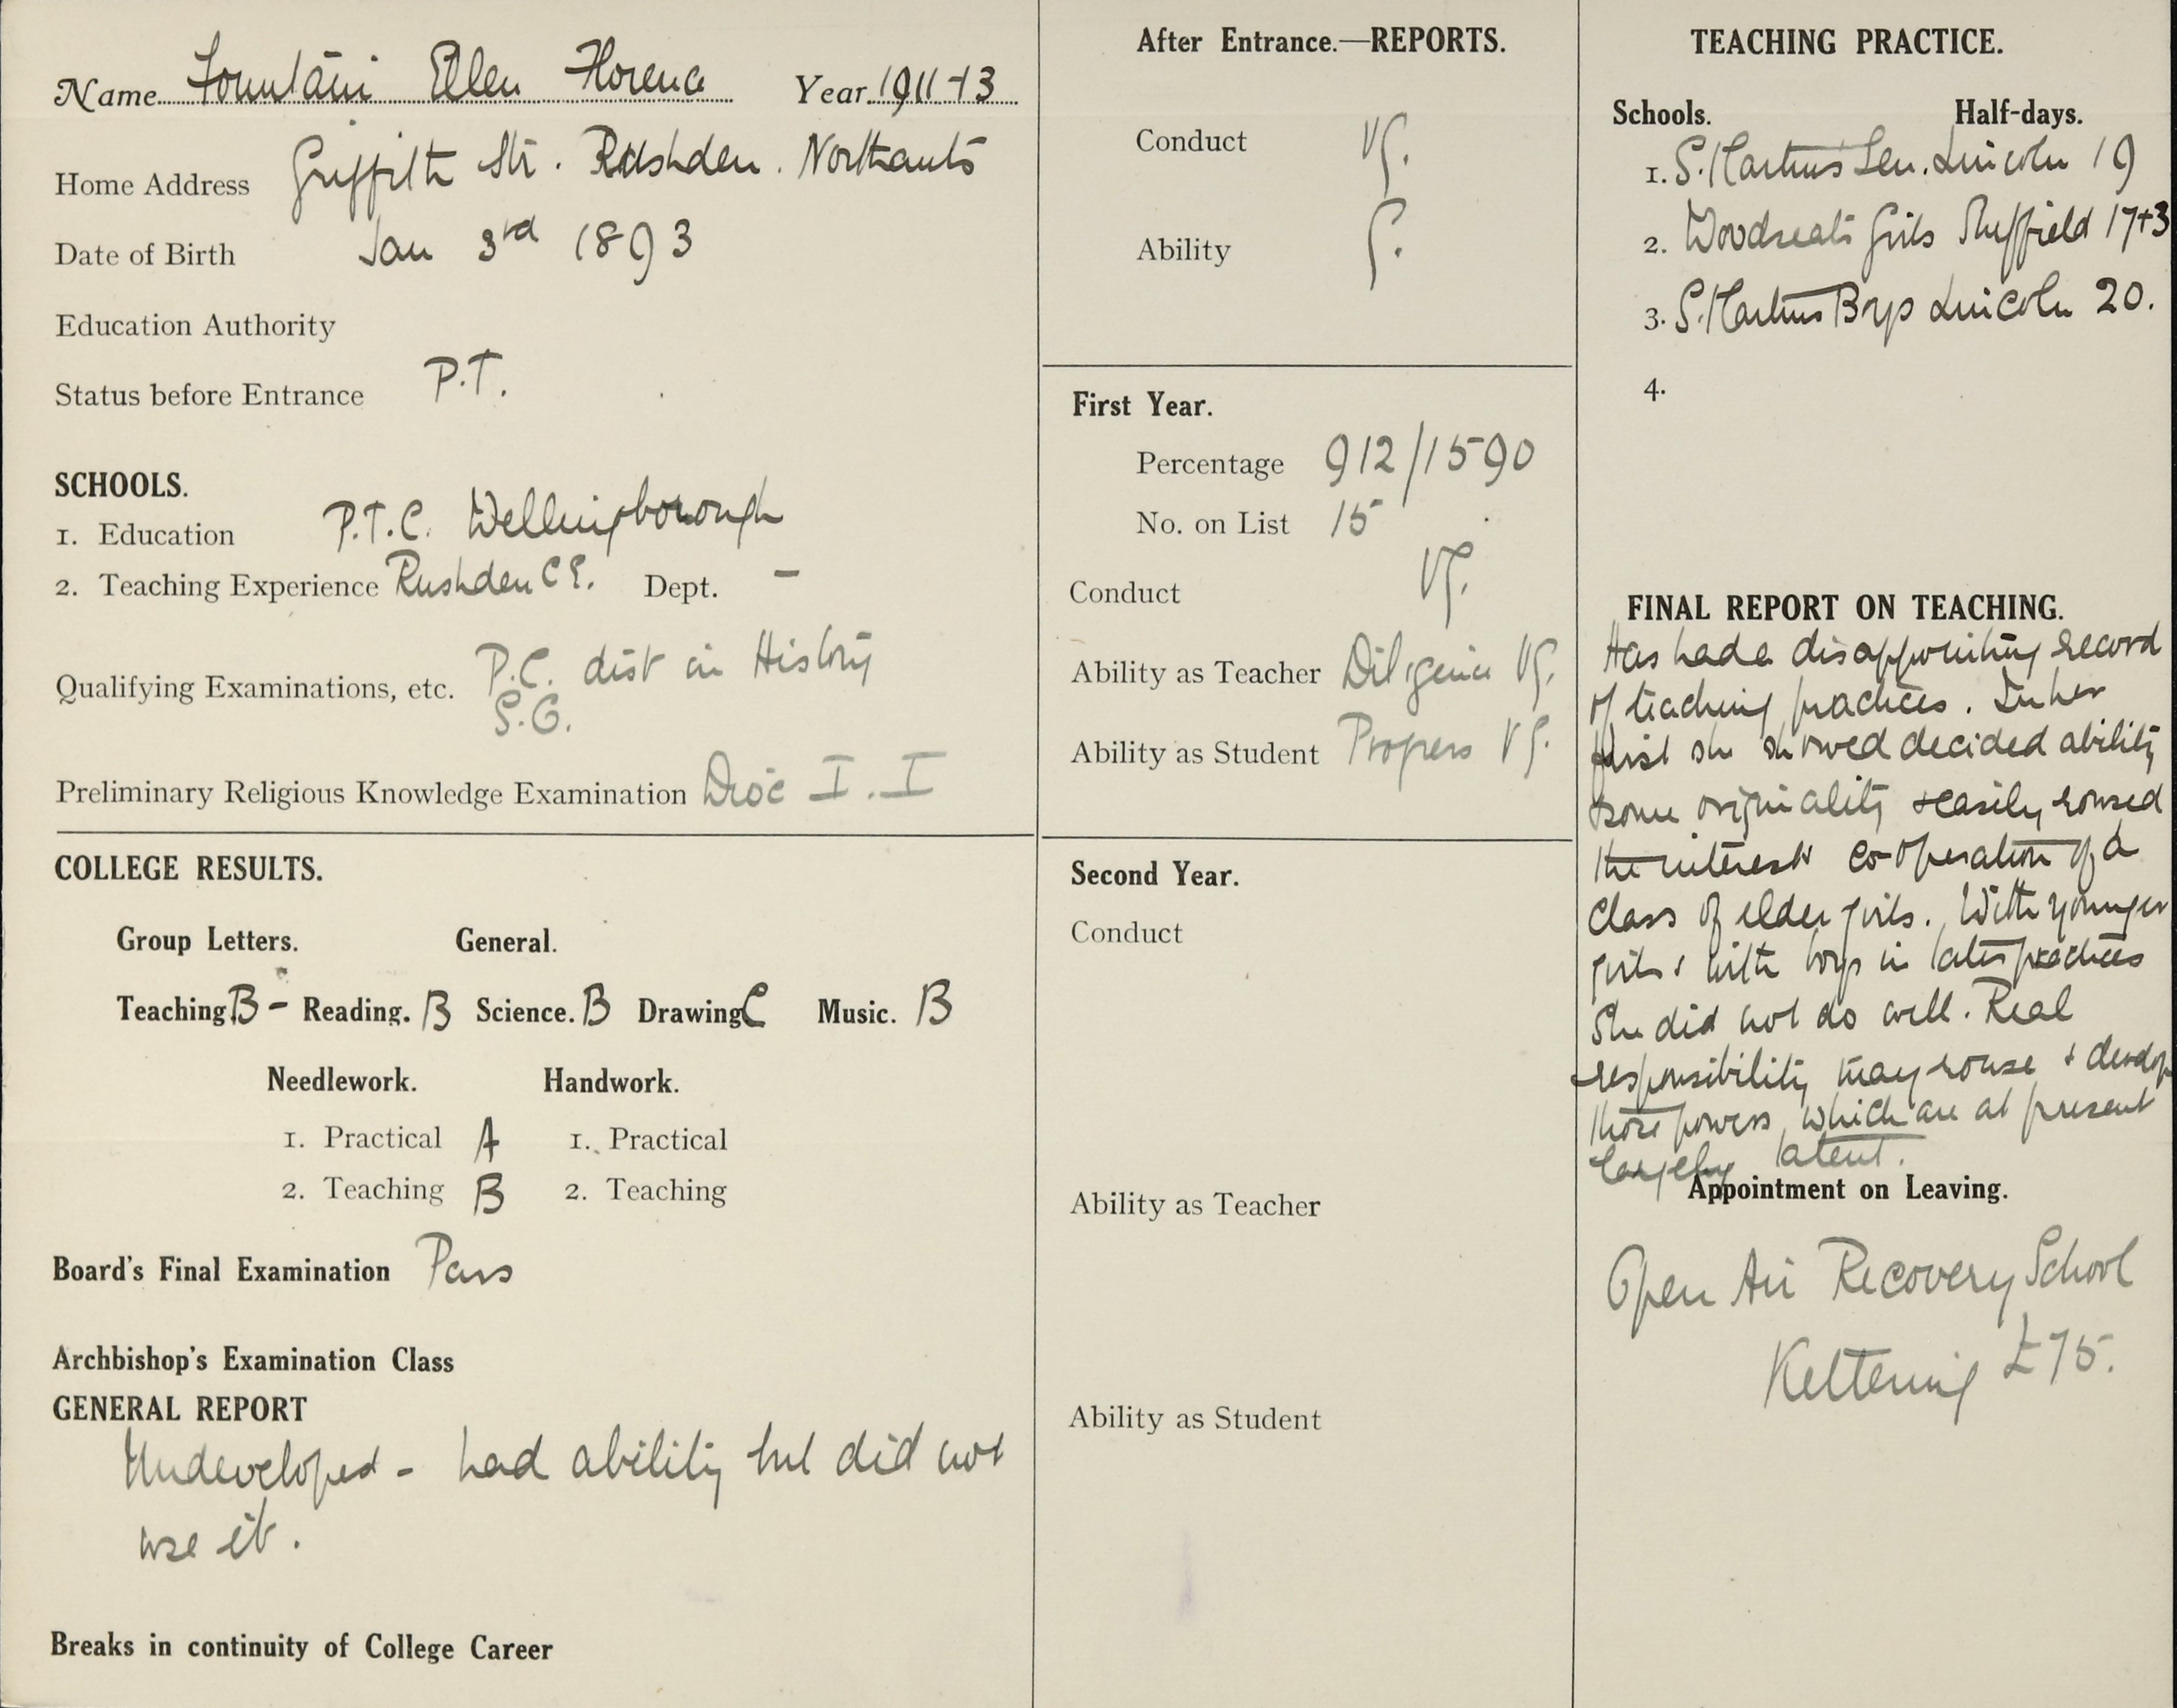 Name Fountain Ellen Florence Year 1911-13
Home Address Griffith Str. Rushden. Northants
Date of Birth Jan 3rd 1893
Education Authority
Status before Entrance P.T.
SCHOOLS.
1. Education P.T.C. Wellingborough
2. Teaching Experience Rushden C E. Dept. -
Qualifying Examinations, etc. P.C. dist in History
S.G.
Preliminary Religious Knowledge Examination Dioc I. I
COLLEGE RESULTS.
Group Letters. General.
Teaching. B - Reading. B Science. B Drawing C Music. B
Needlework. Handwork.
1. Practical A 1. Practical
2. Teaching B 2. Teaching
Board's Final Examination Pass
Archbishop's Examination Class
GENERAL REPORT
Undeveloped - had ability but did not
use it.
Breaks in continuity of College Career
After Entrance.—REPORTS.
Conduct VG.
Ability G.
First Year.
Percentage 912/1590
No. on List 15
Conduct VG.
Ability as Teacher Diligence VG.
Ability as Student Progress VG.
Second Year.
Conduct
Ability as Teacher
Ability as Student
TEACHING PRACTICE.
Schools. Half-days.
1. S. Martins Sen. Lincoln 19
2. Woodseats Girls Sheffield 17+3
3. S. Martins Boys Lincoln 20.
4.
FINAL REPORT ON TEACHING.
Has had a disappointing record
of teaching practices. In her
first she showed decided ability
some originality & easily roused
the interest & co-operation of a
class of elder girls. With younger
girls & with boys in later practices
She did not do well. Real
responsibility may rouse & develop
those powers which are at present
largely latent.
Appointment on Leaving.
Open Air Recovery School
Kettering £75.